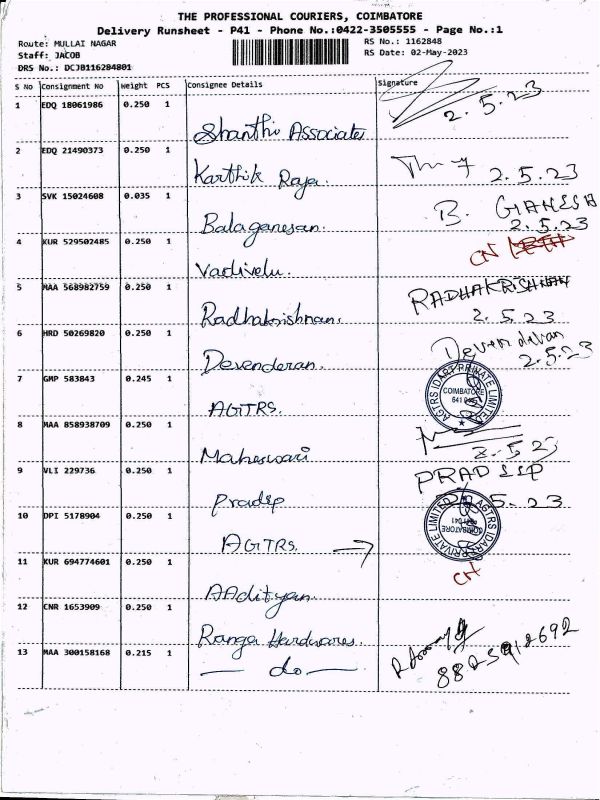 THE PROFESSIONAL COURIERS, COIMBATORE
Delivery Runsheet - P41 - Phone No.:0422-3505555 - Page No.:1
Route: MULLAI NAGAR
RS No.: 1162848
Staff: JACOB
RS Date: 02-May-2023
DRS No.: DCJB116284801
S No Consignment No Weight PCS Consignee Details Signature
1 EDQ 18061986 0.250 1
Shanthi Associates 2.5.23
2 EDQ 21490373 0.250 1
Karthik Raja. 2.5.23
3 SVK 15024608 0.035 1
Balaganesan. B. GANESA 2.5.23
4 KUR 529502485 0.250 1
Vadivelu. CN
5 MAA 568982759 0.250 1
Radhakrishnan. RADHAKRISHNAN 2.5.23
6 HRD 50269820 0.250 1
Devenderan. 2.5.23
7 GMP 583843 0.245 1
AGTRS. AGTRS IDART PRIVATE LIMITED COIMBATORE
8 MAA 858938709 0.250 1
Maheswari 2.5.23
9 VLI 229736 0.250 1
Pradep PRADEEP 2.5.23
10 DPI 5178904 0.250 1
AGTRS. → AGTRS IDART PRIVATE LIMITED COIMBATORE
11 KUR 694774601 0.250 1
AAdityan. CN
12 CNR 1653909 0.250 1
Ranga Hardwares.
13 MAA 300158168 0.215 1
— do — 8825912692